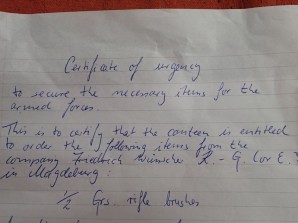 Certificate of urgency
to secure the necessary items for the
armed forces.
This is to certify that the canteen is entitled
to order the following items from the
company Friedrich K. - G. (or E.?
in Magdeburg:
1/2 Grs. rifle brushes